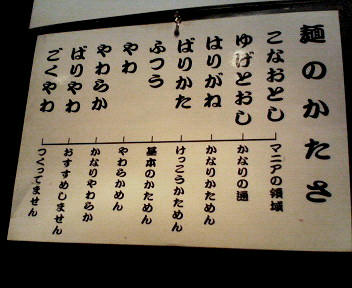 麺のかたさ
こなおとし
マニアの領域
ゆげとおし
かなりの通
はりがね
かなりかためん
ばりかた
けっこうかためん
ふつう
基本のかためん
やわ
やわらかめん
やわらか
かなりやわらか
ばりやわ
おすすめしません
ごくやわ
つくってません